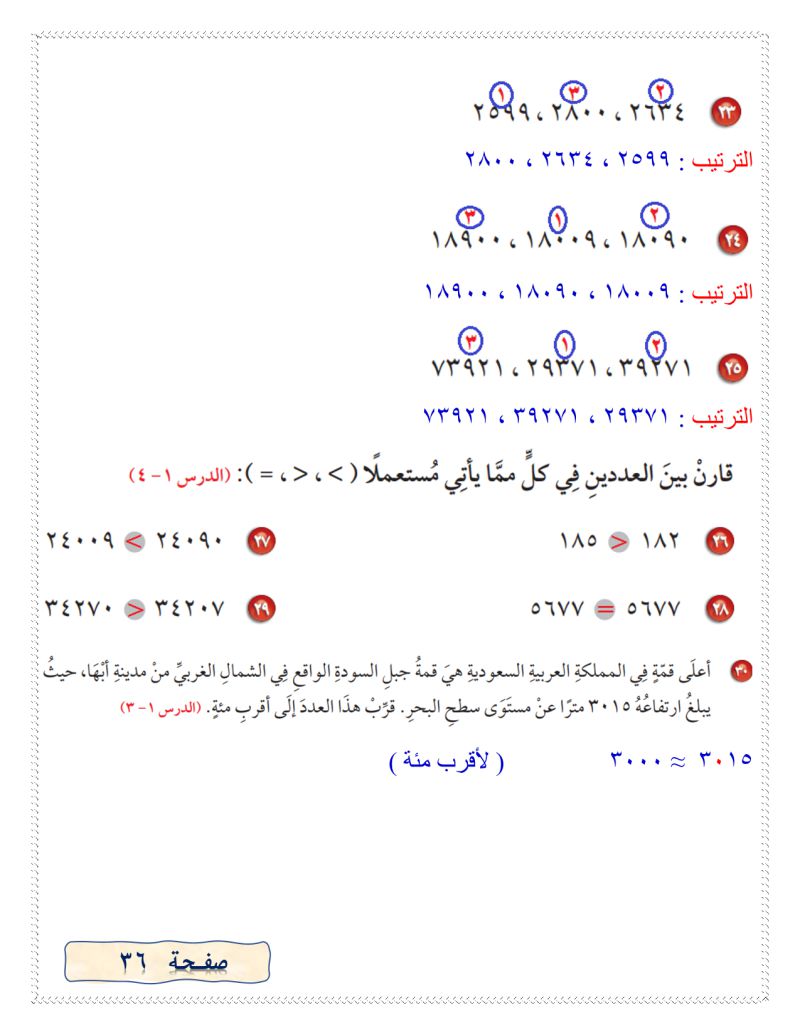 ٢ ٣ ١
٢٣ ٢٦٣٤ ، ٢٨٠٠ ، ٢٥٩٩
الترتيب : ٢٥٩٩ ، ٢٦٣٤ ، ٢٨٠٠
٢ ١ ٣
٢٤ ١٨٠٩٠ ، ١٨٠٠٩ ، ١٨٩٠٠
الترتيب : ١٨٠٠٩ ، ١٨٠٩٠ ، ١٨٩٠٠
٢ ١ ٣
٢٥ ٣٩٢٧١ ، ٢٩٣٧١ ، ٧٣٩٢١
الترتيب : ٢٩٣٧١ ، ٣٩٢٧١ ، ٧٣٩٢١
قارنْ بينَ العددينِ فِي كلٍّ ممَّا يأتِي مُستعملًا ( > ، < ، = ): (الدرس ١ - ٤)
٢٦ ١٨٢ < ١٨٥ ٢٧ ٢٤٠٩٠ > ٢٤٠٠٩
٢٨ ٥٦٧٧ = ٥٦٧٧ ٢٩ ٣٤٢٠٧ < ٣٤٢٧٠
٣٠ أعلَى قمّةٍ فِي المملكةِ العربيةِ السعوديةِ هيَ قمةُ جبلِ السودةِ الواقعِ فِي الشمالِ الغربيِّ منْ مدينةِ أبْهَا، حيثُ
يبلغُ ارتفاعُهُ ٣٠١٥ مترًا عنْ مستَوَى سطحِ البحرِ. قرِّبْ هذَا العددَ إلَى أقربِ مئةٍ. (الدرس ١ - ٣)
٣٠١٥ ≈ ٣٠٠٠ ( لأقرب مئة )
صفحة ٣٦